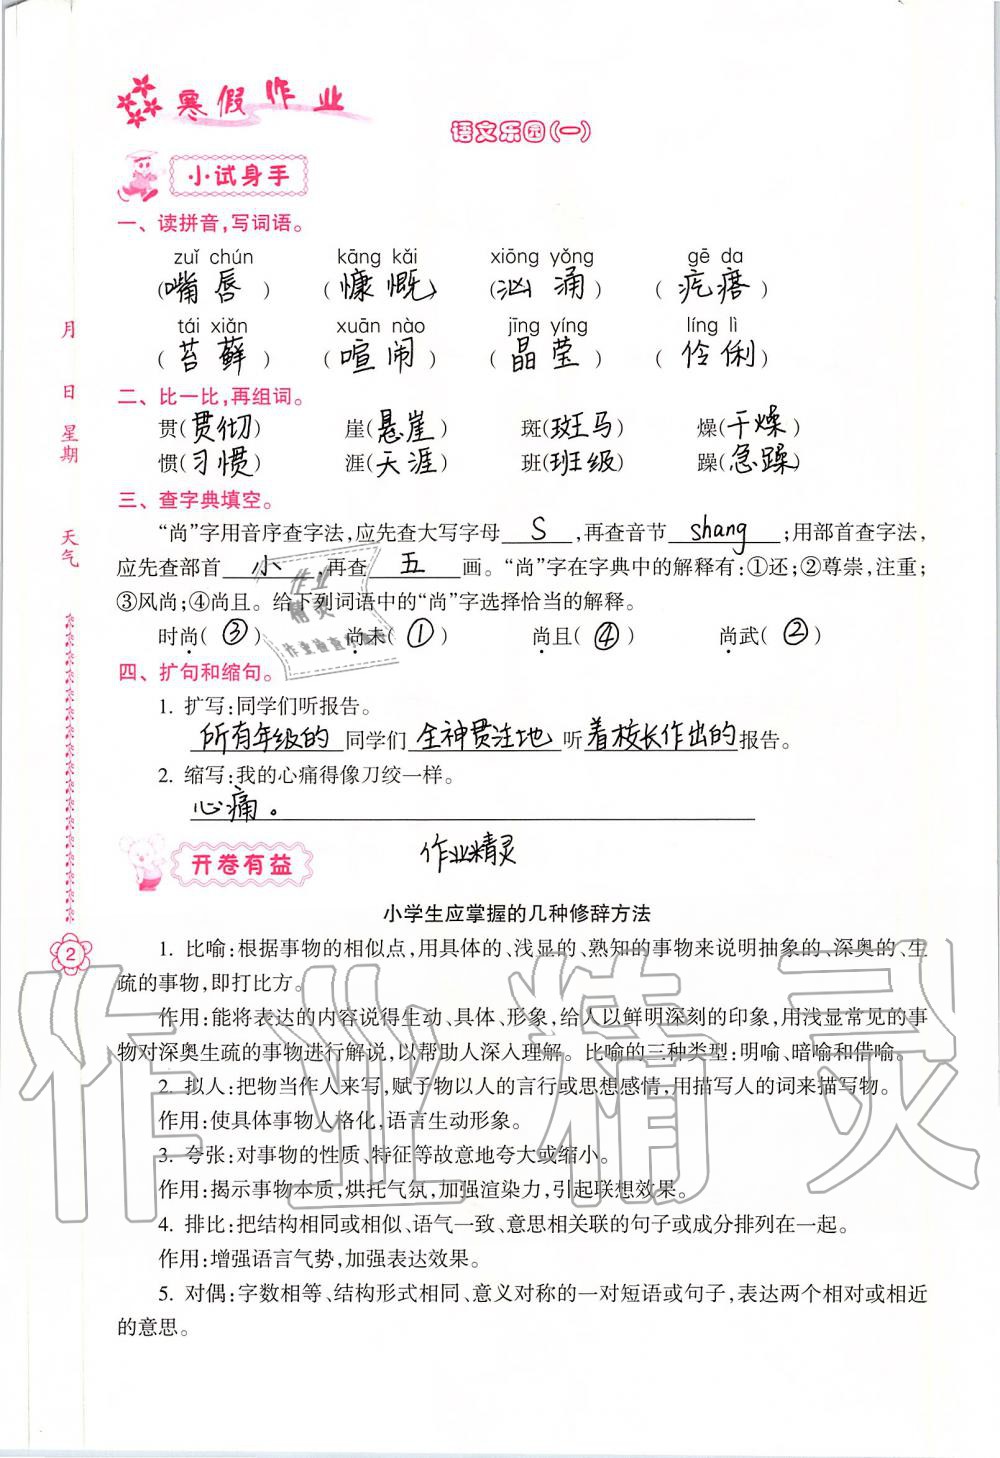 寒假作业
语文乐园(一)
小试身手
一、读拼音,写词语。
zuǐ chún kāng kǎi xiōng yǒng gē da
(嘴唇) (慷慨) (汹涌) (疙瘩)
tái xiǎn xuān nào jīng yíng líng lì
(苔藓) (喧闹) (晶莹) (伶俐)
二、比一比,再组词。
贯(贯彻) 崖(悬崖) 斑(斑马) 燥(干燥)
惯(习惯) 涯(天涯) 班(班级) 躁(急躁)
三、查字典填空。
“尚”字用音序查字法,应先查大写字母 S ,再查音节 shang ;用部首查字法,
应先查部首 小 ,再查 五 画。“尚”字在字典中的解释有:①还;②尊崇,注重;
③风尚;④尚且。给下列词语中的“尚”字选择恰当的解释。
时尚(③) 尚未(①) 尚且(④) 尚武(②)
四、扩句和缩句。
1. 扩写:同学们听报告。
所有年级的同学们全神贯注地听着校长作出的报告。
2. 缩写:我的心痛得像刀绞一样。
心痛。
作业精灵
开卷有益
小学生应掌握的几种修辞方法
1. 比喻:根据事物的相似点,用具体的、浅显的、熟知的事物来说明抽象的、深奥的、生
疏的事物,即打比方。
作用:能将表达的内容说得生动、具体、形象,给人以鲜明深刻的印象,用浅显常见的事
物对深奥生疏的事物进行解说,以帮助人深入理解。比喻的三种类型:明喻、暗喻和借喻。
2. 拟人:把物当作人来写,赋于物以人的言行或思想感情,用描写人的词来描写物。
作用:使具体事物人格化,语言生动形象。
3. 夸张:对事物的性质、特征等故意地夸大或缩小。
作用:揭示事物本质,烘托气氛,加强渲染力,引起联想效果。
4. 排比:把结构相同或相似、语气一致、意思相关联的句子或成分排列在一起。
作用:增强语言气势,加强表达效果。
5. 对偶:字数相等、结构形式相同、意义对称的一对短语或句子,表达两个相对或相近
的意思。
月
日
星期
天气
2
作业精灵
作业
精灵
作业检查小帮手